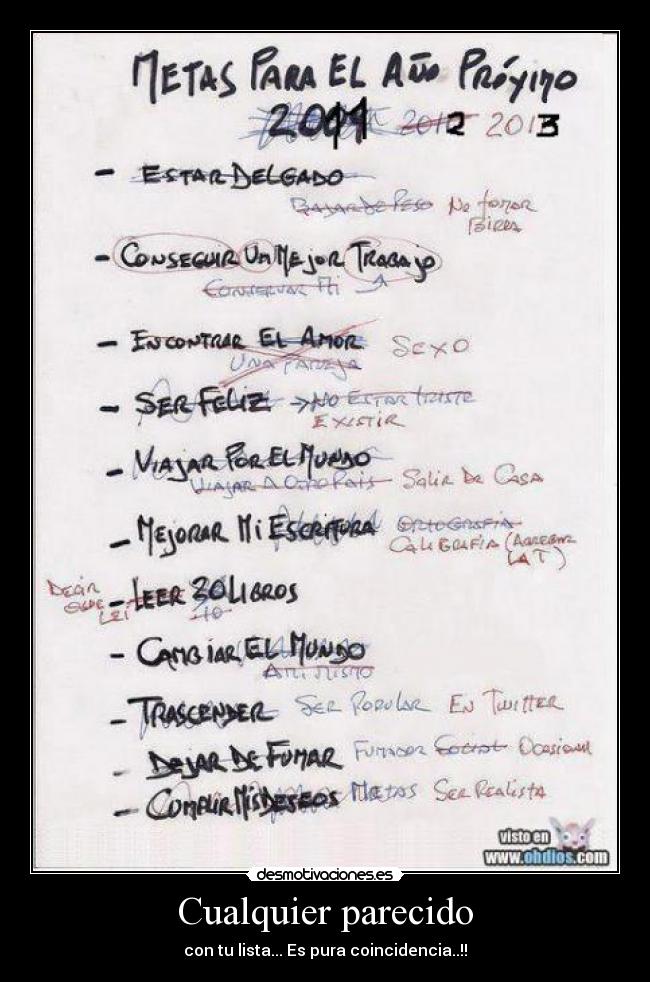 METAS PARA EL AÑO PRÓXIMO
2011 2012 2013
- ESTAR DELGADO
BAJAR DE PESO NO TOMAR
BIRRA
- CONSEGUIR UN MEJOR TRABAJO
CONSERVAR MI
- ENCONTRAR EL AMOR SEXO
UNA PAREJA
- SER FELIZ → NO ESTAR TRISTE
EXISTIR
- VIAJAR POR EL MUNDO
VIAJAR A OTRO PAIS SALIR DE CASA
- MEJORAR MI ESCRITURA ORTOGRAFIA
CALIGRAFIA (AGREGAR
LA T)
DECIR
QUE
LEI
- LEER 30 LIBROS
10
- CAMBIAR EL MUNDO
A MI MISMO
- TRASCENDER SER POPULAR EN TWITTER
- DEJAR DE FUMAR FUMADOR SOCIAL OCASIONAL
- CUMPLIR MIS DESEOS METAS SER REALISTA
visto en
www.ohdios.com
desmotivaciones.es
Cualquier parecido
con tu lista... Es pura coincidencia..!!